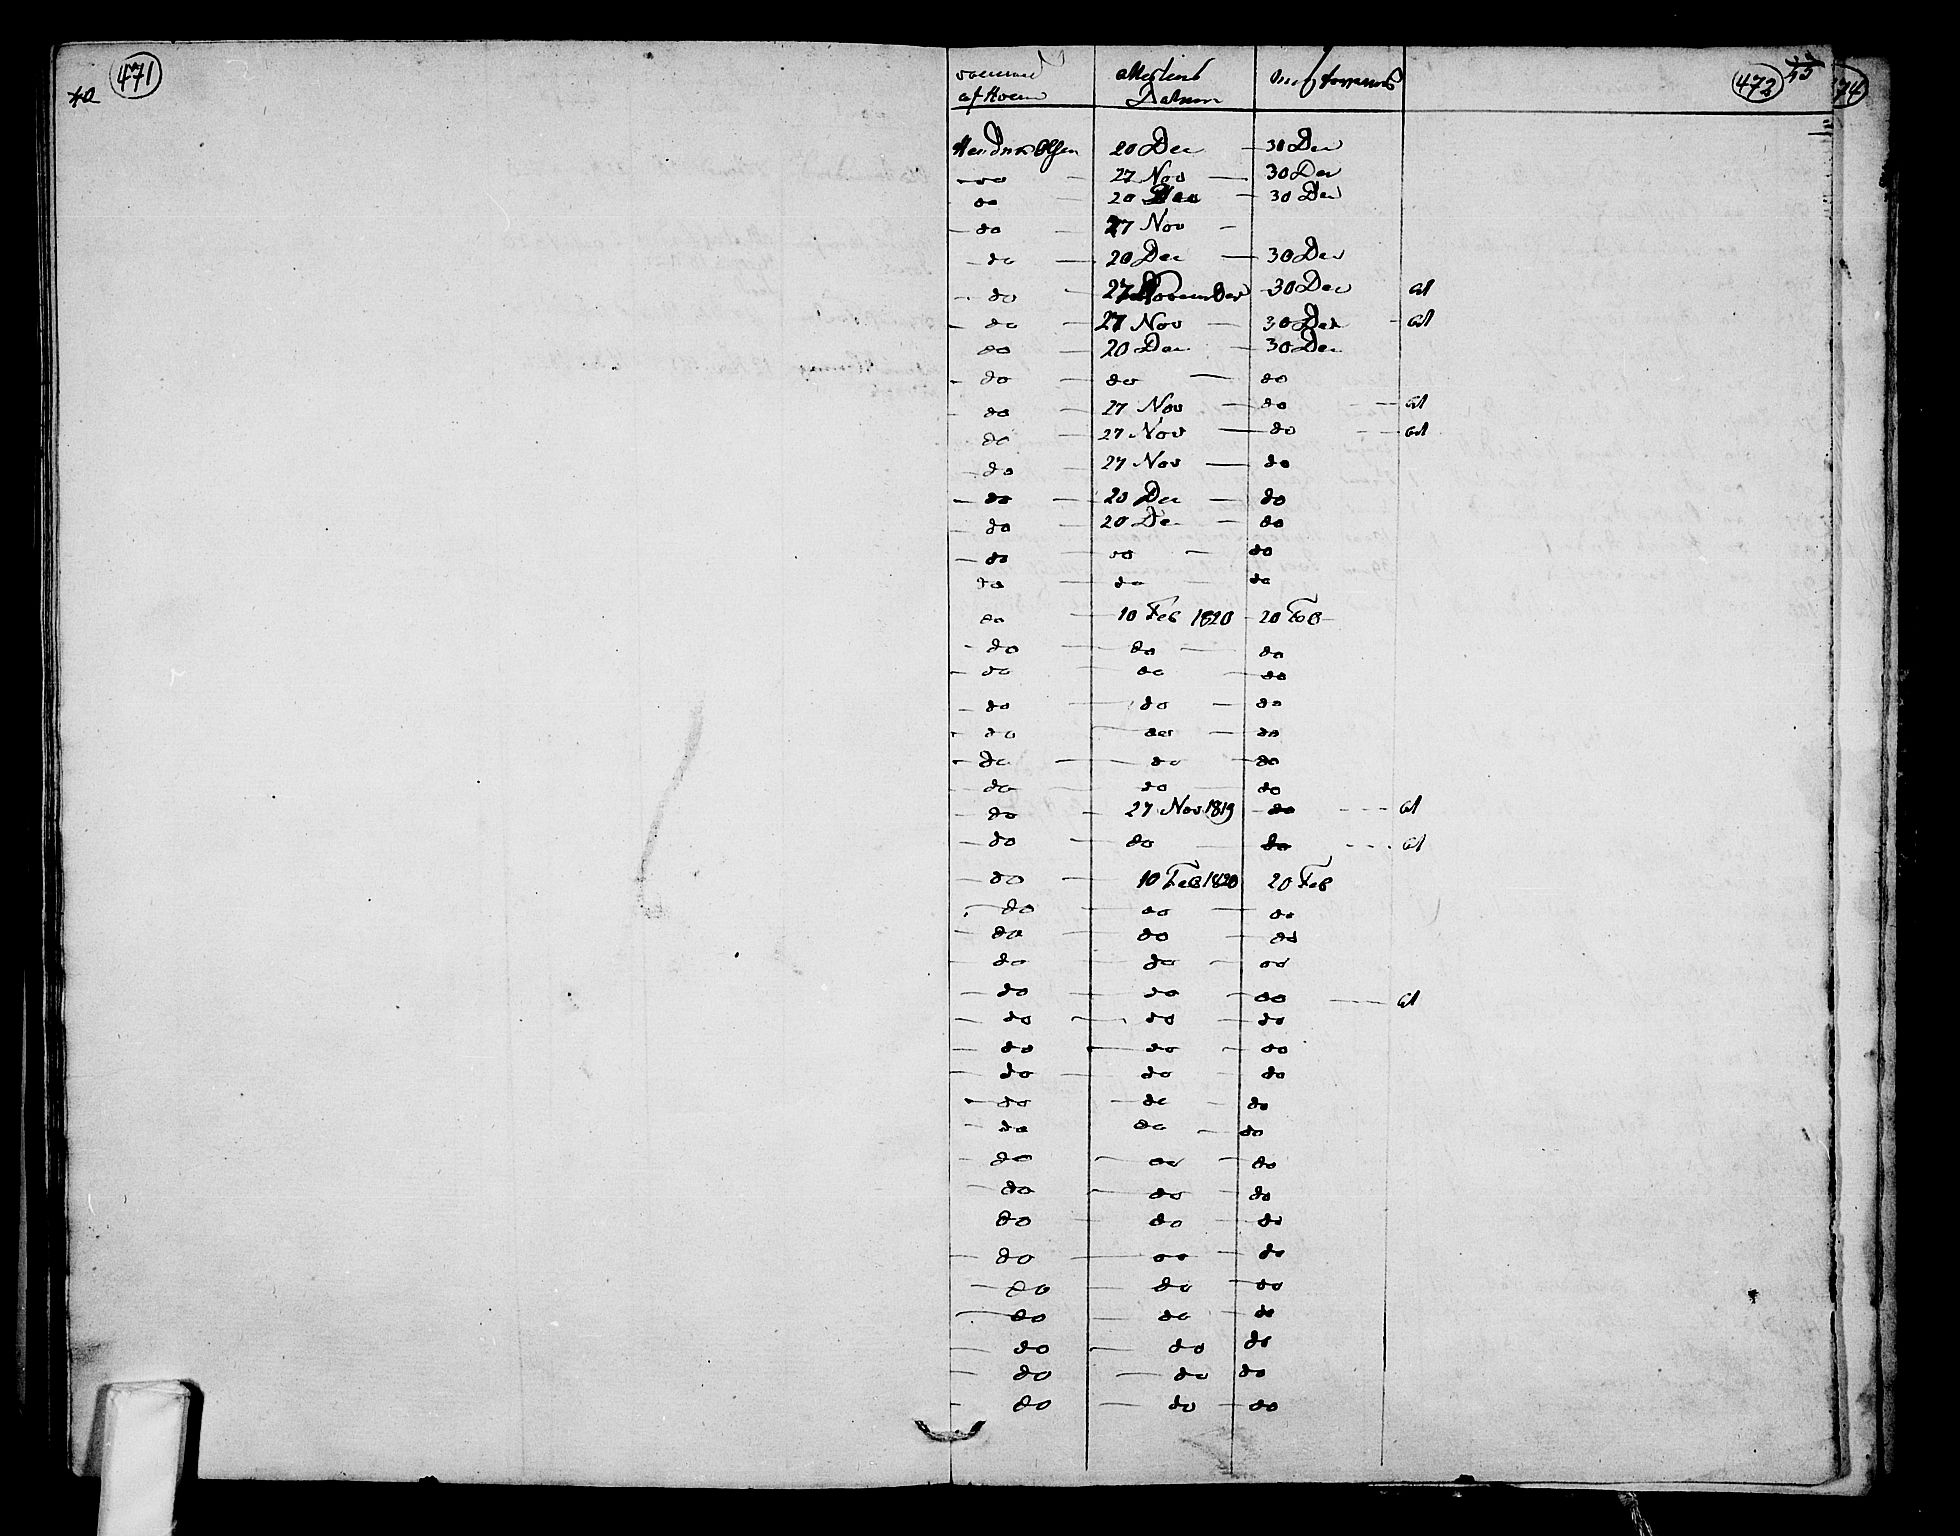 471
472 55 74
af Hvem Datum
20 Dec 30 Dec
do 27 Nov 30 Dec
do 20 Dec 30 Dec
do 27 Nov
do 20 Dec 30 Dec
do 27 November 30 Dec at
do 27 Nov 30 Dec at
do 20 Dec 30 Dec
do do do
do 27 Nov do at
do 27 Nov do at
do 27 Nov do
do 20 Dec do
do 20 Dec do
do do do
do do do
do 10 Feb 1820 20 Feb
do do do
do do do
do do do
do do do
do do do
do do do
do 27 Nov 1819 do at
do do do at
do 10 Feb 1820 20 Feb
do do do
do do do
do do do
do do do at
do do do
do do do
do do do
do do do
do do do
do do do
do do do
do do do
do do do
do do do
do do do
do do do
do do do
do do do